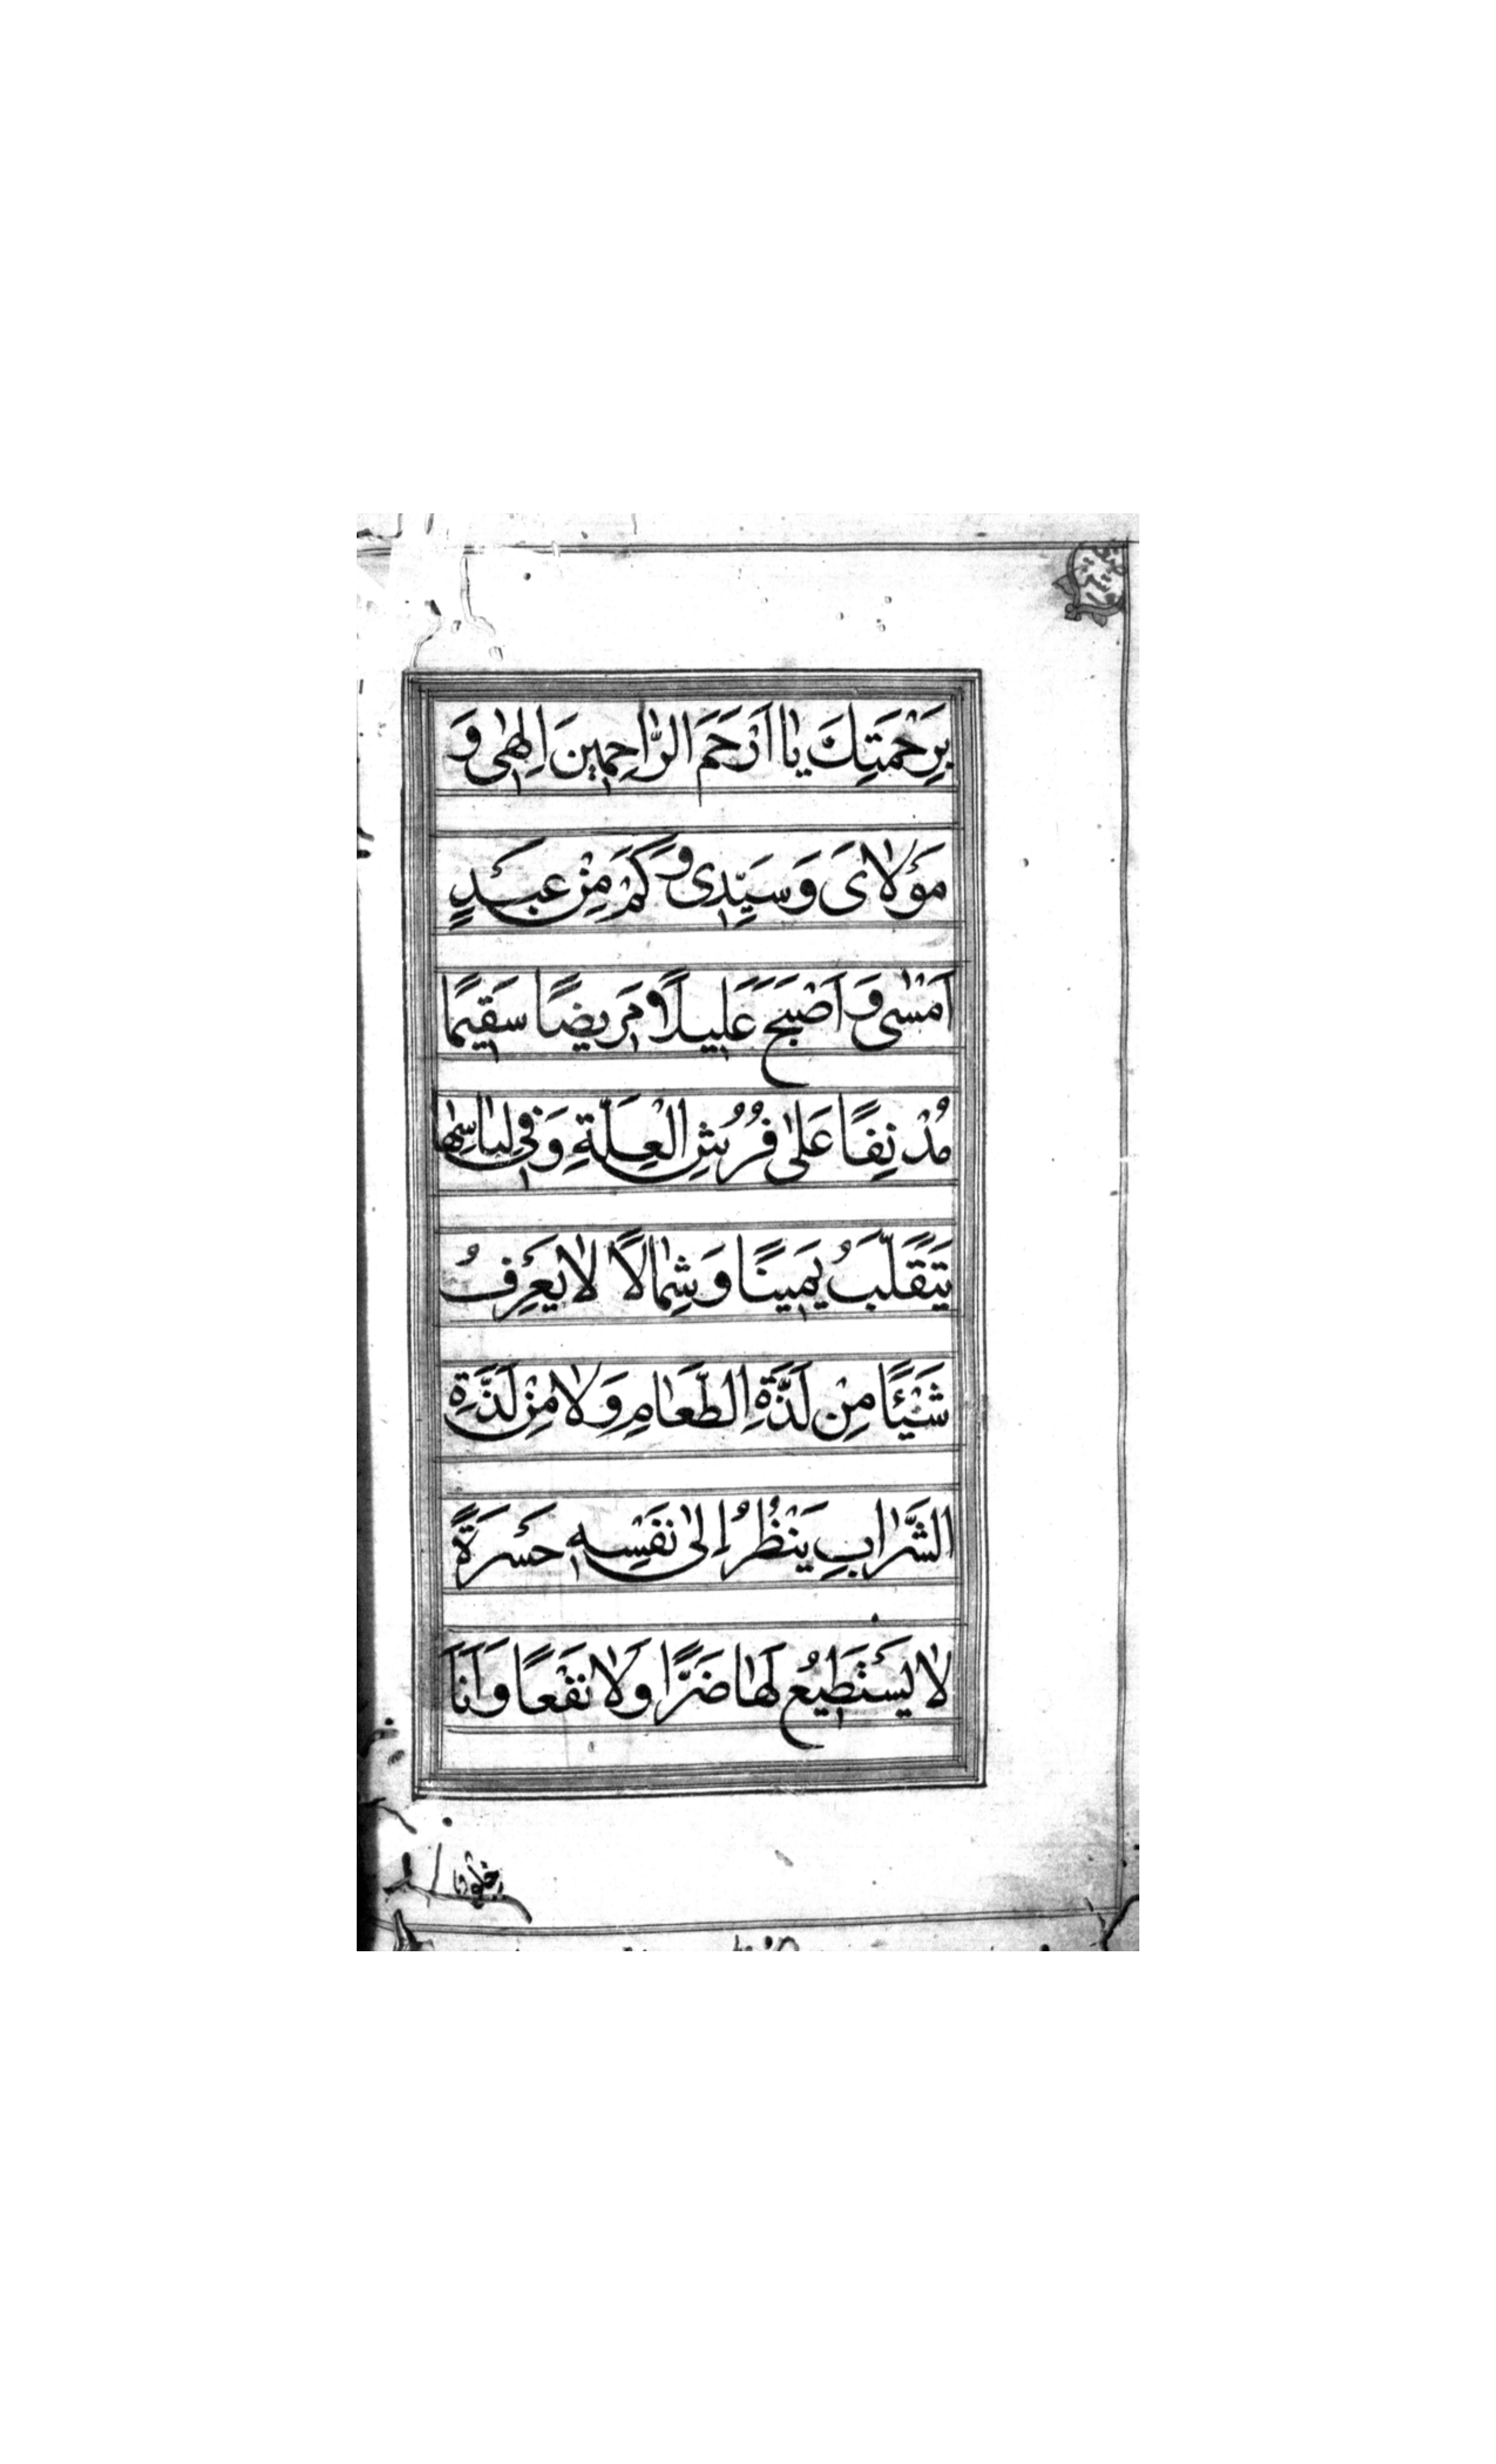 بِرَحْمَتِكَ يَا اَرْحَمَ الرَّاحِمِينَ اِلٰهِى وَ
مَوْلَاىَ وَسَيِّدِى وَكَمْ مِنْ عَبْدٍ
اَمْسٰى وَاَصْبَحَ عَلِيلًا مَرِيضًا سَقِيمًا
مُدْنِفًا عَلٰى فُرُشِ الْعِلَّةِ وَفِى لِبَاسِهَا
يَتَقَلَّبُ يَمِينًا وَشِمَالًا لَا يَعْرِفُ
شَيْئًا مِنْ لَذَّةِ الطَّعَامِ وَلَا مِنْ لَذَّةِ
الشَّرَابِ يَنْظُرُ اِلٰى نَفْسِهِ حَسْرَةً
لَا يَسْتَطِيعُ لَهَا ضَرًّا وَلَا نَفْعًا وَاَنَا